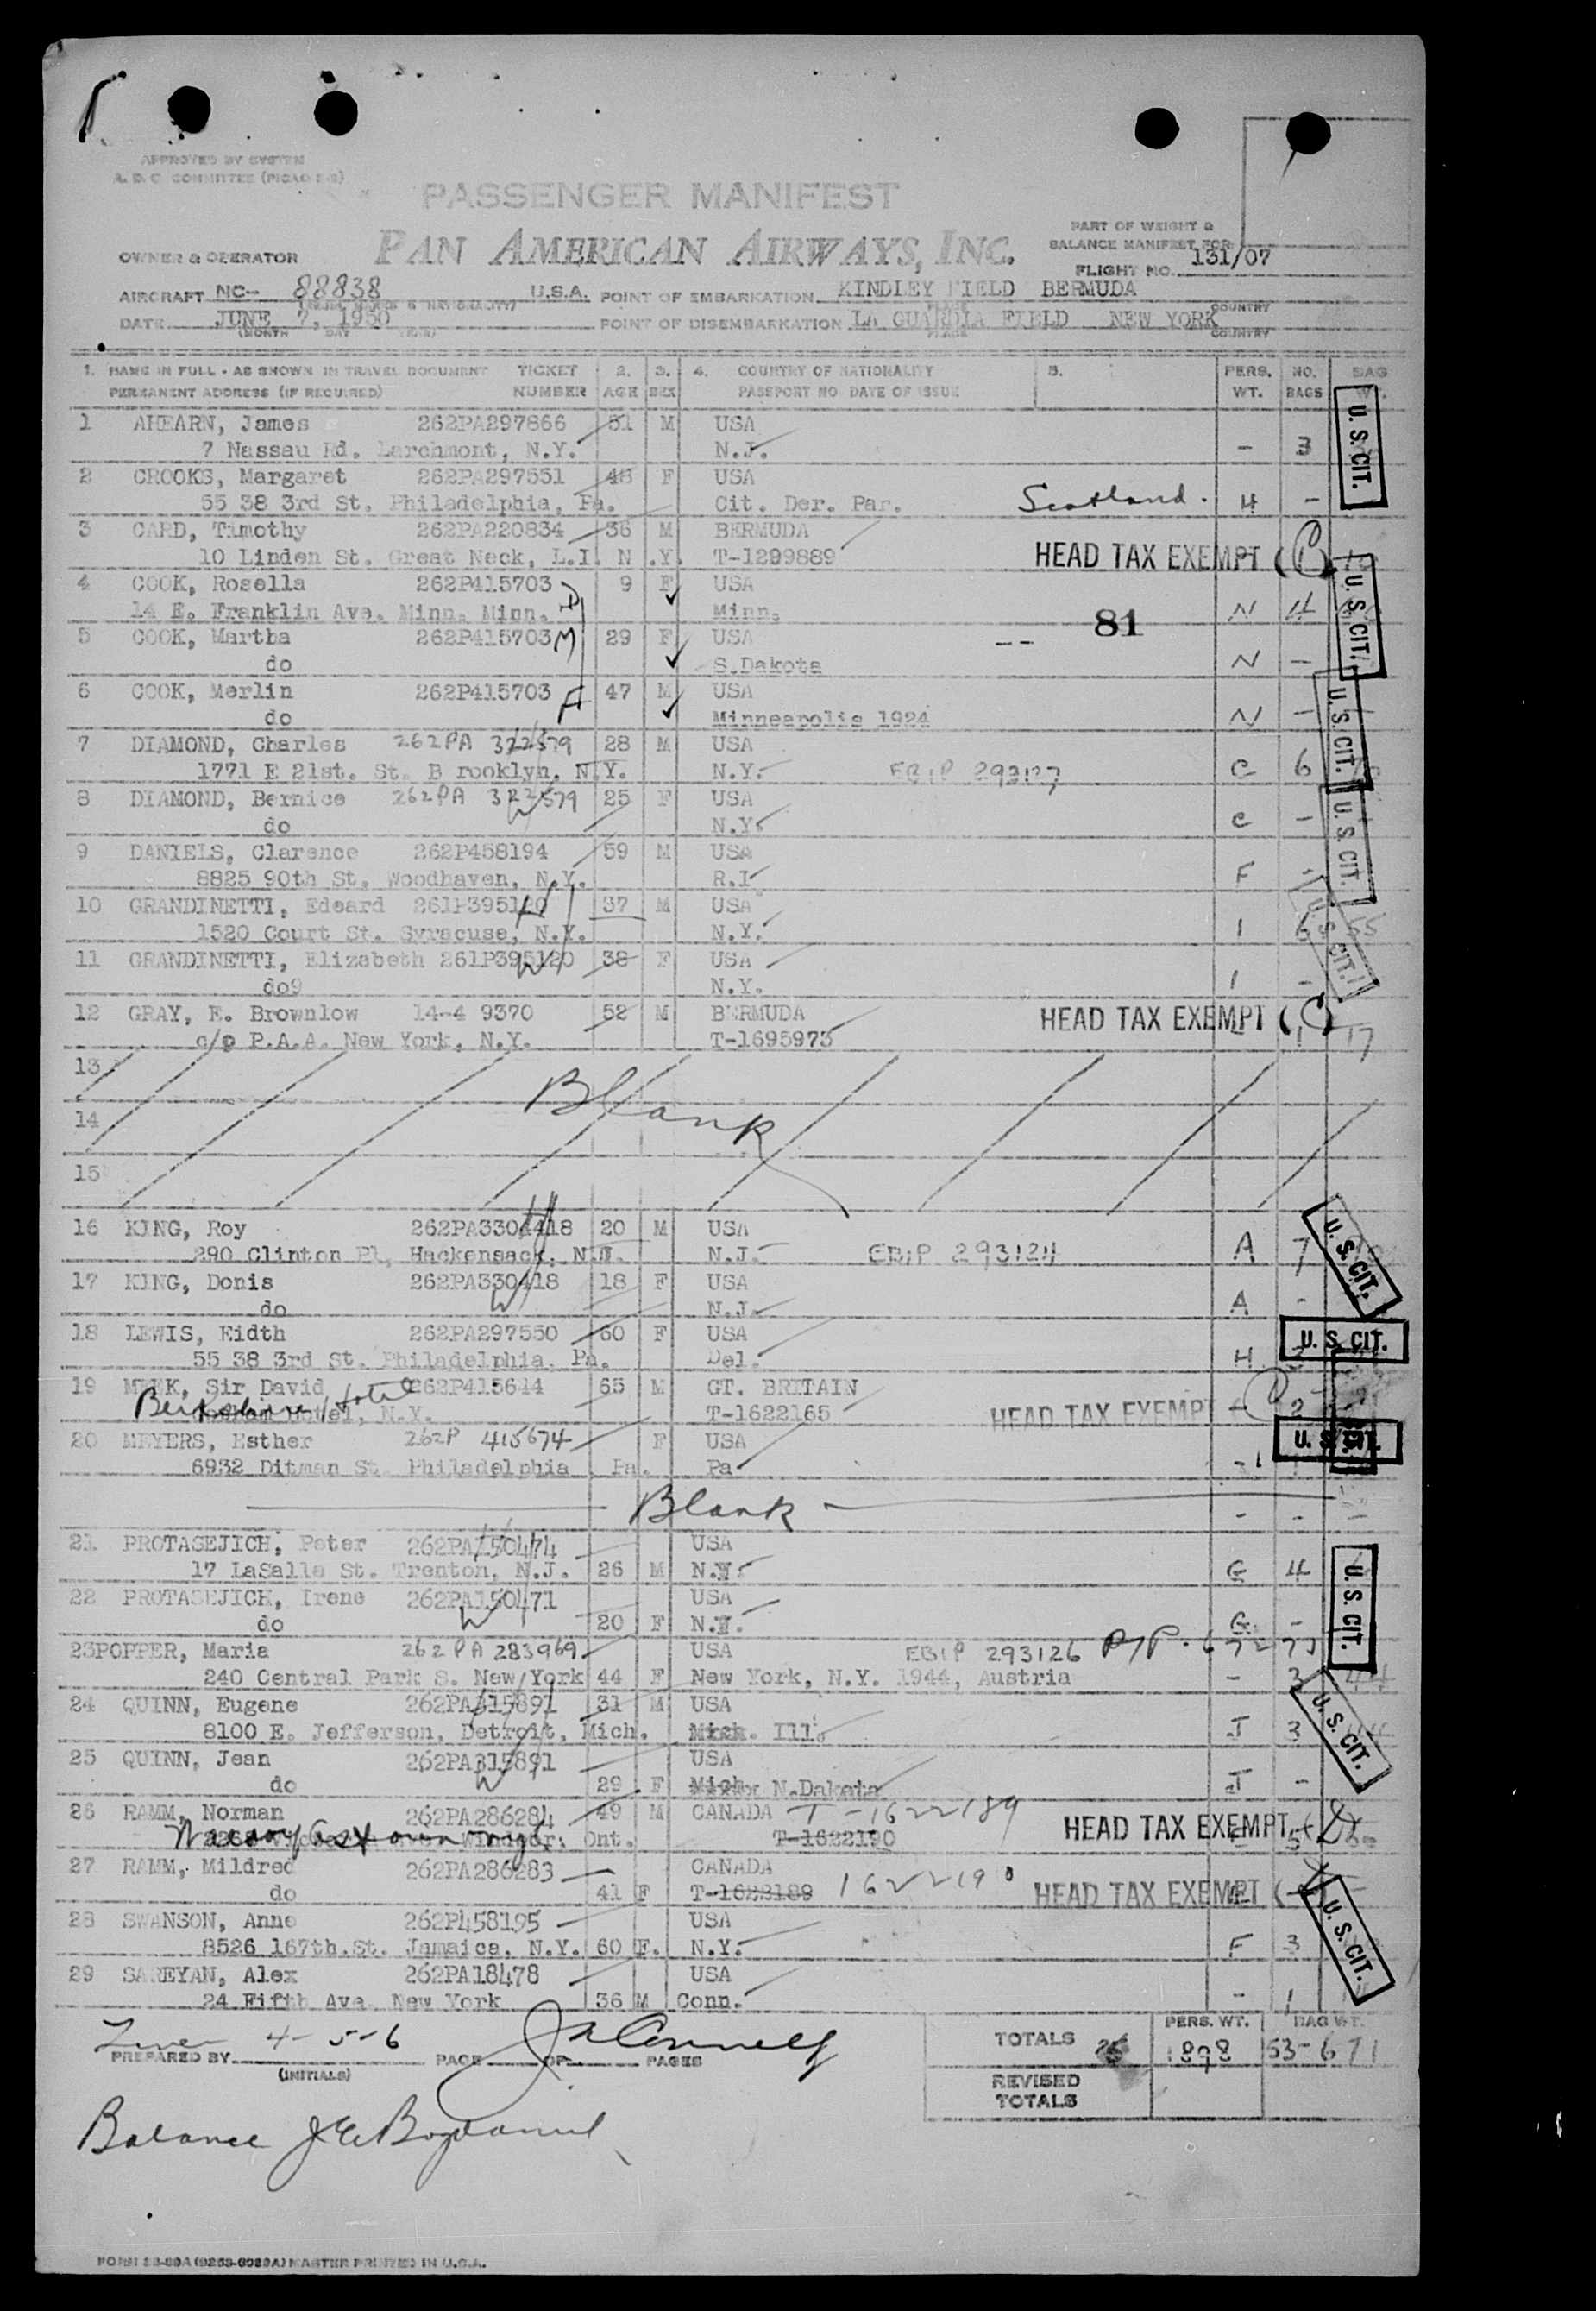 APPROVED BY SYSTEM
A. D. C. COMMITTEE (PICAO 2-3)
PASSENGER MANIFEST
PAN AMERICAN AIRWAYS, INC.
PART OF WEIGHT &
BALANCE MANIFEST FOR
FLIGHT NO. 131/07
OWNER & OPERATOR
AIRCRAFT NC- 88838 U.S.A. POINT OF EMBARKATION KINDLEY FIELD BERMUDA
PLACE COUNTRY
DATE JUNE 7, 1950 POINT OF DISEMBARKATION LA GUARDIA FIELD NEW YORK
(MONTH DAY YEAR) PLACE COUNTRY
1. NAME IN FULL - AS SHOWN IN TRAVEL DOCUMENT TICKET 2. 3. 4. COUNTRY OF NATIONALITY 5. PERS. NO. BAG
PERMANENT ADDRESS (IF REQUIRED) NUMBER AGE SEX PASSPORT NO DATE OF ISSUE WT. BAGS WT.
1 AHEARN, James 262PA297866 51 M USA U. S. CIT.
7 Nassau Rd. Larchmont, N.Y. N.J. - 3
2 CROOKS, Margaret 262PA297551 48 F USA
55 38 3rd St. Philadelphia, Pa. Cit. Der. Par. Scotland. H -
3 CARD, Timothy 262PA220834 36 M BERMUDA
10 Linden St. Great Neck, L.I. N .Y. T-1299889 HEAD TAX EXEMPT (C)
4 COOK, Rosella 262P415703 D 9 F USA U. S. CIT.
14 E. Franklin Ave. Minn. Minn. Minn. 81 N 4
5 COOK, Martha 262P415703 M 29 F USA --
do S.Dakota N -
6 COOK, Merlin 262P415703 F 47 M USA U. S. CIT.
do Minneapolis 1924 N -
7 DIAMOND, Charles 262PA 322579 28 M USA
1771 E 21st. St. B rooklyn, N.Y. N.Y. EBIP 293127 C 6
8 DIAMOND, Bernice 262PA 322579 W 25 F USA U. S. CIT.
do N.Y. C -
9 DANIELS, Clarence 262P458194 59 M USA
8825 90th St. Woodhaven, N.Y. R.I F -
10 GRANDINETTI, Edeard 261P395120 H 37 M USA U. S. CIT.
1520 Court St. Syracuse, N.Y. N.Y. 1 6 55
11 GRANDINETTI, Elizabeth 261P395120 W 38 F USA
do9 N.Y. 1 -
12 GRAY, E. Brownlow 14-4 9370 52 M BERMUDA HEAD TAX EXEMPT (C)
c/o P.A.A. New York, N.Y. T-1695973 1 17
13
Blank
14
15
16 KING, Roy 262PA330418 H 20 M USA U. S. CIT.
290 Clinton Pl, Hackensack, N.J. N.J. EBIP 293124 A 7
17 KING, Donis 262PA330418 W 18 F USA
do N.J. A -
18 LEWIS, Eidth 262PA297550 60 F USA U. S. CIT.
55 38 3rd St. Philadelphia, Pa. Del. H
19 MEEK, Sir David 262P415644 65 M GT. BRITAIN
Berkshire Hotel
Hotel, N.Y. T-1622165 HEAD TAX EXEMPT - 2
20 MEYERS, Esther 262P 415674 F USA U. S. CIT.
6932 Ditman St. Philadelphia Pa. Pa
Blank - - - -
21 PROTASEJICH, Peter 262PA150474 USA
17 LaSalle St. Trenton, N.J. 26 M N.Y. G 4 U. S. CIT.
22 PROTASEJICH, Irene 262PA150471 W USA
do 20 F N.Y. G -
23POPPER, Maria 262PA283969 USA EBIP 293126 P/P.
240 Central Park S. New York 44 F New York, N.Y. 1944, Austria - 3 44
24 QUINN, Eugene 262PA315891 31 M USA U. S. CIT.
8100 E. Jefferson, Detroit, Mich. Mich. Ill. J 3 44
25 QUINN, Jean 262PA315891 W USA
do 29 F Mich N.Dakota J -
26 RAMM, Norman 262PA286284 49 M CANADA T-1622189 HEAD TAX EXEMPT
Windsor, Ont. T-1622190 5
27 RAMM, Mildred 262PA286283 CANADA
do 41 F T-1622189 1622190 HEAD TAX EXEMPT
28 SWANSON, Anne 262P458195 USA U. S. CIT.
8526 167th.St. Jamaica, N.Y. 60 F. N.Y. F 3
29 SAREYAN, Alex 262PA18478 USA
24 Fifth Ave. New York 36 M Conn. - 1
4-5-6
PREPARED BY PAGE OF PAGES
(INITIALS)
TOTALS 26 PERS. WT. 1898 BAG WT. 53-671
REVISED
TOTALS
Balance
FORM 28-89A (9263-6029A) MASTER PRINTED IN U.S.A.